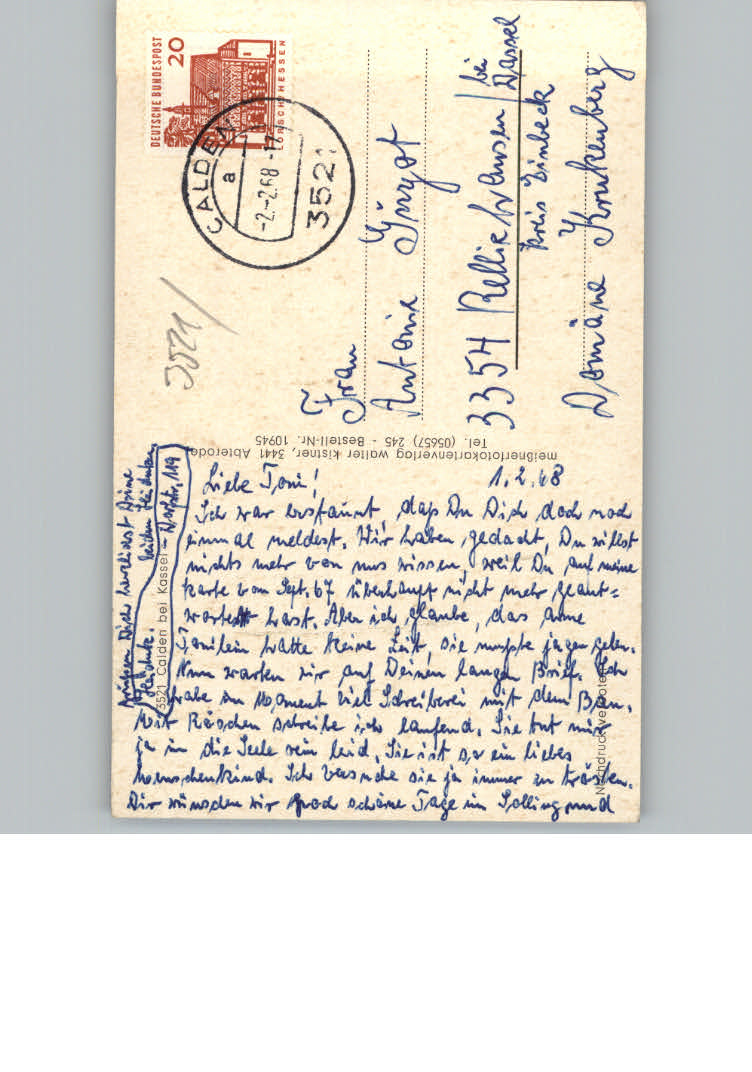 DEUTSCHE BUNDESPOST
20
LORSCH/HESSEN
CALDEN
a
-2.-2.68-17
3521
3521/
Frau
Antonie
3354 Relliehausen / bei Dassel
Kreis Einbeck
Domäne
meißnerfotokartenverlag walter kistner, 3441 Abterode
Tel. (05657) 245 - Bestell-Nr. 10945
3521 Calden bei Kassel
Nachdruck verboten
1.2.68
Liebe Toni!
Ich war erstaunt, daß Du Dich doch noch
einmal meldest. Wir haben gedacht, Du willst
nichts mehr von uns wissen, weil Du auf meine
Karte vom Sept. 67 überhaupt nicht mehr geant=
wortet hast. Aber ich glaube, das arme
Tonilein hatte keine Zeit, sie mußte jagen gehen.
Nun warten wir auf Deinen langen Brief. Ich
habe im Moment viel Schreiberei mit dem
Mit Röschen schreibe ich laufend. Sie tut mir
ja in die Seele rein leid. Sie ist so ein liebes
Menschenkind. Ich versuche sie ja immer zu trösten.
Dir wünschen wir noch schöne Tage im Solling und
grüßen Dich herzlichst Deine
beiden